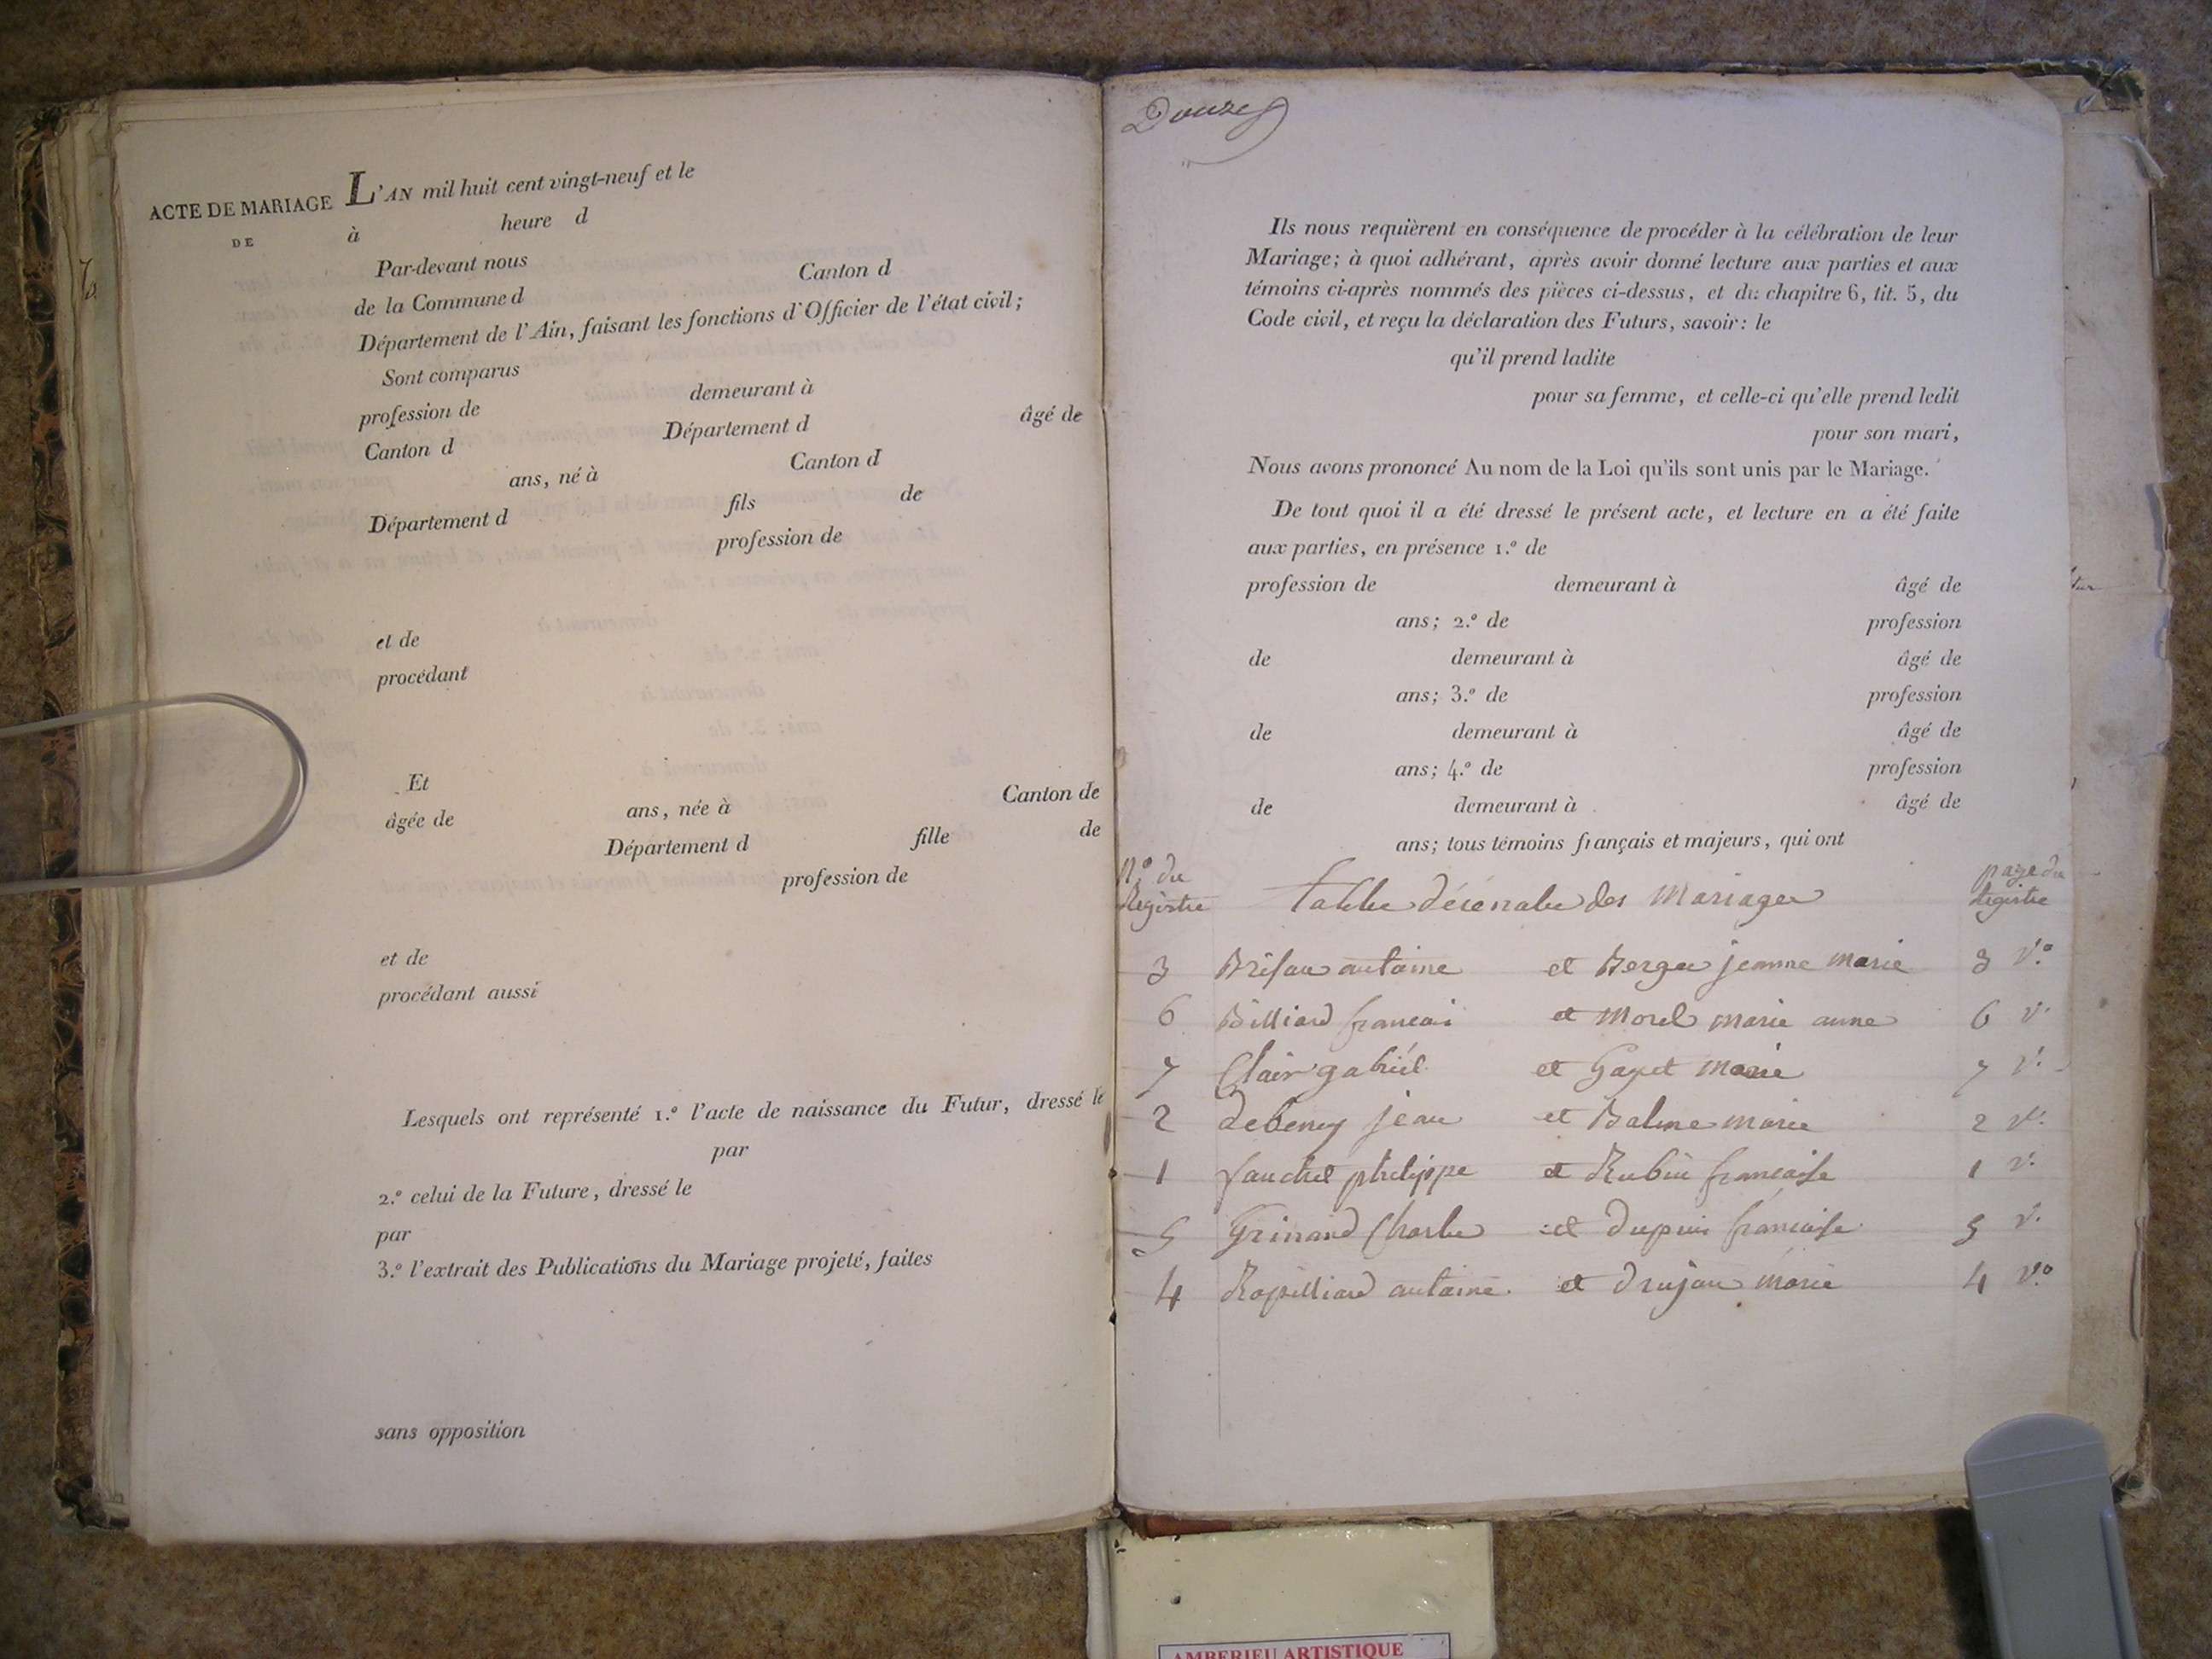 ACTE DE MARIAGE
DE
L'AN mil huit cent vingt-neuf et le
à heure d
Par-devant nous
de la Commune d Canton d
Département de l'Ain, faisant les fonctions d'Officier de l'état civil;
Sont comparus
profession de demeurant à
Canton d Département d âgé de
ans, né à Canton d
Département d fils de
profession de
et de
procédant
Et
âgée de ans, née à Canton de
Département d fille de
profession de
et de
procédant aussi
Lesquels ont représenté 1.º l'acte de naissance du Futur, dressé le
par
2.º celui de la Future, dressé le
par
3.º l'extrait des Publications du Mariage projeté, faites
sans opposition
Douze
Ils nous requièrent en conséquence de procéder à la célébration de leur
Mariage; à quoi adhérant, après avoir donné lecture aux parties et aux
témoins ci-après nommés des pièces ci-dessus, et du chapitre 6, tit. 5, du
Code civil, et reçu la déclaration des Futurs, savoir: le
qu'il prend ladite
pour sa femme, et celle-ci qu'elle prend ledit
pour son mari,
Nous avons prononcé Au nom de la Loi qu'ils sont unis par le Mariage.
De tout quoi il a été dressé le présent acte, et lecture en a été faite
aux parties, en présence 1.º de
profession de demeurant à âgé de
ans; 2.º de profession
de demeurant à âgé de
ans; 3.º de profession
de demeurant à âgé de
ans; 4.º de profession
de demeurant à âgé de
ans; tous témoins français et majeurs, qui ont
N.º du Registre Table décenale des Mariages page du Registre
3 antoine et Berger jeanne marie 3 v.º
6 Billiard francois et Morel marie anne 6 v.
7 Clair gabriél et Gapet marie 7 v.
2 debeney jean et Balme marie 2 v.
1 fauchel philippe et Rubin francaise 1 v.
5 Grinand Charle et dupuis francaise 5 v.
4 Ropilliard antoine et drujon marie 4 v.º
AMBERIEU ARTISTIQUE